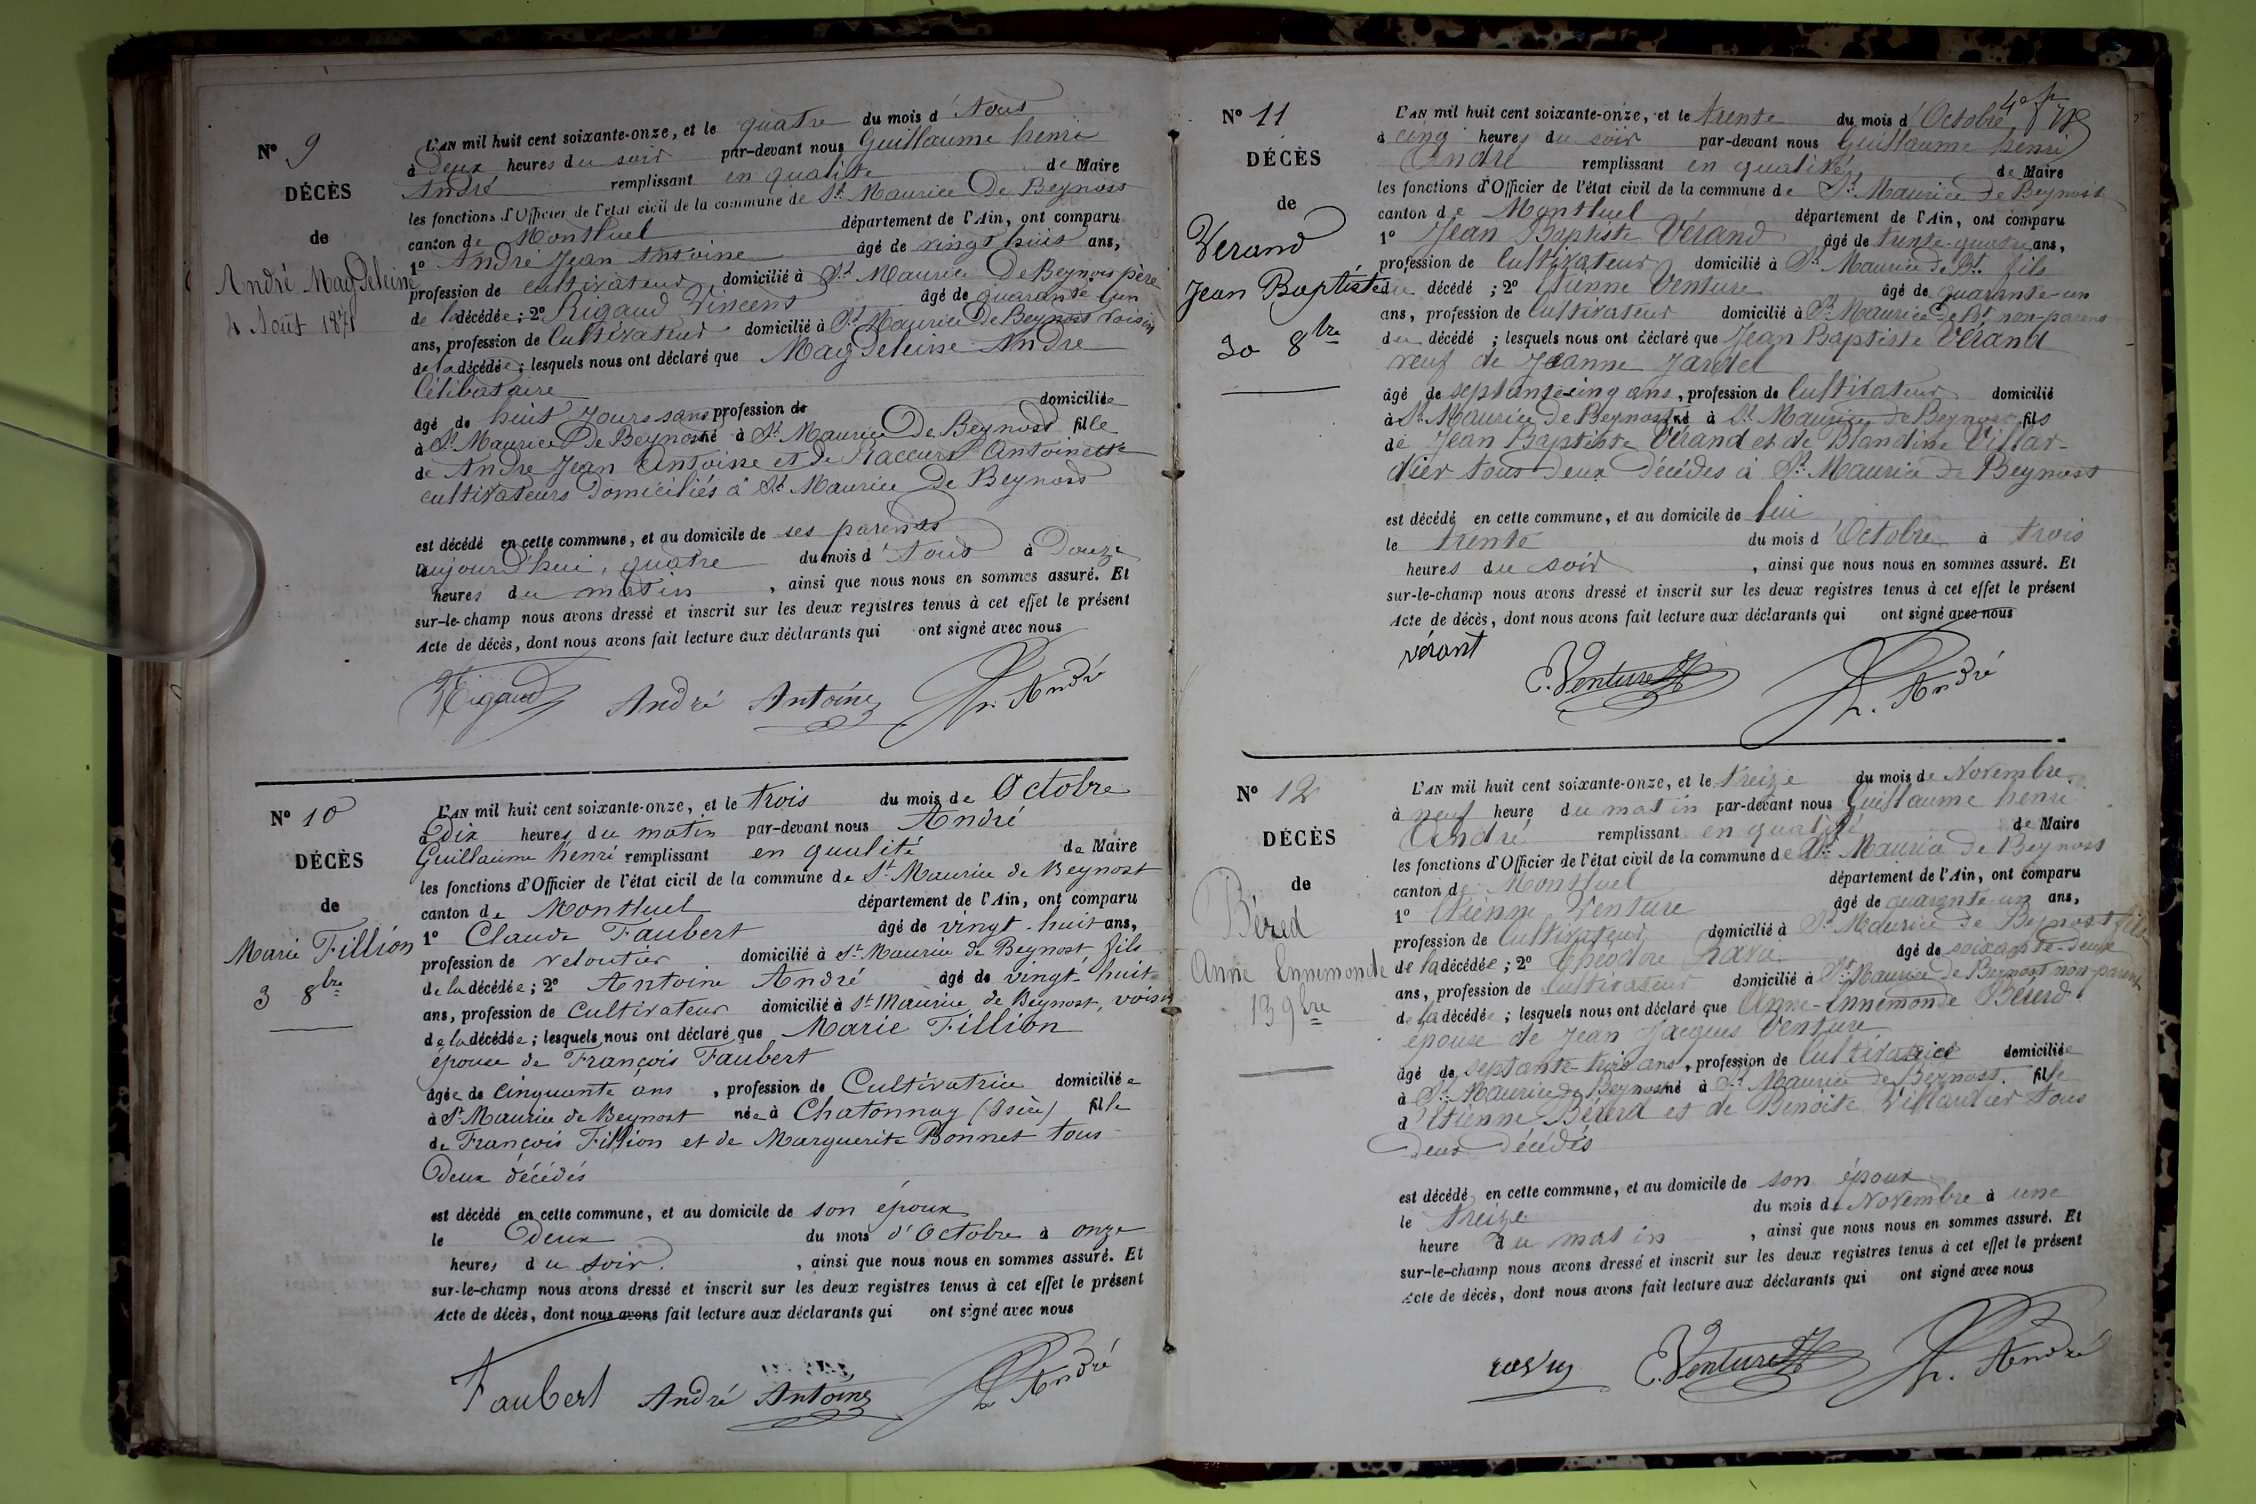 N° 9
DÉCÈS
de
André Magdeleine
4 Août 1871
L'AN mil huit cent soixante-onze, et le quatre du mois d'Aout
à Deux heures du soir par-devant nous Guillaume henri
André remplissant en qualité de Maire
les fonctions d'Officier de l'état civil de la commune de St Maurice De Beynost
canton de Montluel département de l'Ain, ont comparu
1° André Jean Antoine âgé de vingt huit ans,
profession de cultivateur domicilié à St Maurice De Beynost père
de la décédée ; 2° Rigaud Vincent âgé de quarante un
ans, profession de Cultivateur domicilié à St Maurice De Beynost voisin
de la décédée ; lesquels nous ont déclaré que Magdeleine André
Célibataire
âgé de huit jours sans profession de domiciliée
à St Maurice De Beynost né à St Maurice De Beynost fille
de André Jean Antoine et de Antoinette
cultivateurs Domiciliés à St Maurice De Beynost
est décédé en cette commune, et au domicile de ses parents
aujourd'hui, quatre du mois d'Aout à Douze
heures du matin , ainsi que nous nous en sommes assuré. Et
sur-le-champ nous avons dressé et inscrit sur les deux registres tenus à cet effet le présent
Acte de décès, dont nous avons fait lecture aux déclarants qui ont signé avec nous
Rigaud André Antoine h. André
N° 10
DÉCÈS
de
Marie Fillion
3 8bre
L'AN mil huit cent soixante-onze, et le trois du mois de Octobre
à Dix heures du matin par-devant nous André
Guillaume henri remplissant en qualité de Maire
les fonctions d'Officier de l'état civil de la commune de St Maurice de Beynost
canton de Montluel département de l'Ain, ont comparu
1° Claude Faubert âgé de vingt-huit ans,
profession de veloutier domicilié à St Maurice de Beynost, fils
de la décédée ; 2° Antoine André âgé de vingt-huit
ans, profession de Cultivateur domicilié à St Maurice de Beynost, voisin
de la décédée ; lesquels nous ont déclaré que Marie Fillion
épouse de François Faubert
âgée de cinquante ans , profession de Cultivatrice domiciliée
à St Maurice de Beynost née à Chatonnay (Isère) fille
de François Fillion et de Marguerite Bonnet tous
Deux décédés
est décédé en cette commune, et au domicile de son époux
le Deux du mois d'Octobre à onze
heures du soir. , ainsi que nous nous en sommes assuré. Et
sur-le-champ nous avons dressé et inscrit sur les deux registres tenus à cet effet le présent
Acte de décès, dont nous avons fait lecture aux déclarants qui ont signé avec nous
Faubert André Antoine h. André
N° 11
DÉCÈS
de
Verand
Jean Baptiste
30 8bre
L'AN mil huit cent soixante-onze, et le trente du mois d'Octobre
à cinq heures du soir par-devant nous Guillaume henri
André remplissant en qualité de Maire
les fonctions d'Officier de l'état civil de la commune de St Maurice de Beynost
canton de Montluel département de l'Ain, ont comparu
1° Jean Baptiste Vérand âgé de trente-quatre ans,
profession de Cultivateur domicilié à St Maurice de Bt. fils
du décédé ; 2° Etienne Venture âgé de quarante-un
ans, profession de Cultivateur domicilié à St Maurice de Bt non-parent
du décédé ; lesquels nous ont déclaré que Jean Baptiste Vérand
veuf de Jeanne Jardel
âgé de septante-cinq ans, profession de Cultivateur domicilié
à St Maurice de Beynost né à St Maurice de Beynost fils
de Jean Baptiste Vérand et de Blandine Villar-
dier tous Deux Décédés à St Maurice de Beynost
est décédé en cette commune, et au domicile de lui
le trente du mois d'Octobre à trois
heures du soir , ainsi que nous nous en sommes assuré. Et
sur-le-champ nous avons dressé et inscrit sur les deux registres tenus à cet effet le présent
Acte de décès, dont nous avons fait lecture aux déclarants qui ont signé avec nous
vérant E. Venture h. André
N° 12
DÉCÈS
de
Béred
Anne Ennemonde
13 9bre
L'AN mil huit cent soixante-onze, et le treize du mois de Novembre
à neuf heure du matin par-devant nous Guillaume henri
André remplissant en qualité de Maire
les fonctions d'Officier de l'état civil de la commune de St Maurice de Beynost
canton de Montluel département de l'Ain, ont comparu
1° Etienne Venture âgé de quarante-un ans,
profession de Cultivateur domicilié à St Maurice de Beynost fils
de la décédée ; 2° Théodore Ravie âgé de soixante-deux
ans, profession de Cultivateur domicilié à St Maurice de Beynost non-parent
de la décédée ; lesquels nous ont déclaré que Anne-Ennemonde Bérerd
épouse de Jean Jacques Venture
âgé de septante-trois ans, profession de Cultivatrice domiciliée
à St Maurice de Beynost né à St Maurice de Beynost. fille
d'Etienne Bérerd et de Benoite Villardier tous
Deux Décédés
est décédé en cette commune, et au domicile de son époux
le treize du mois de Novembre à une
heure du matin , ainsi que nous nous en sommes assuré. Et
sur-le-champ nous avons dressé et inscrit sur les deux registres tenus à cet effet le présent
Acte de décès, dont nous avons fait lecture aux déclarants qui ont signé avec nous
E. Venture h. André